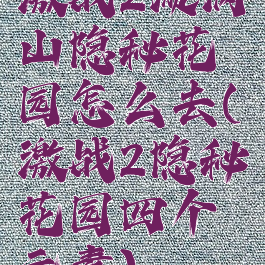 激战2龙洞
山隐秘花
园怎么去(
激战2隐秘
花园四个
元素)